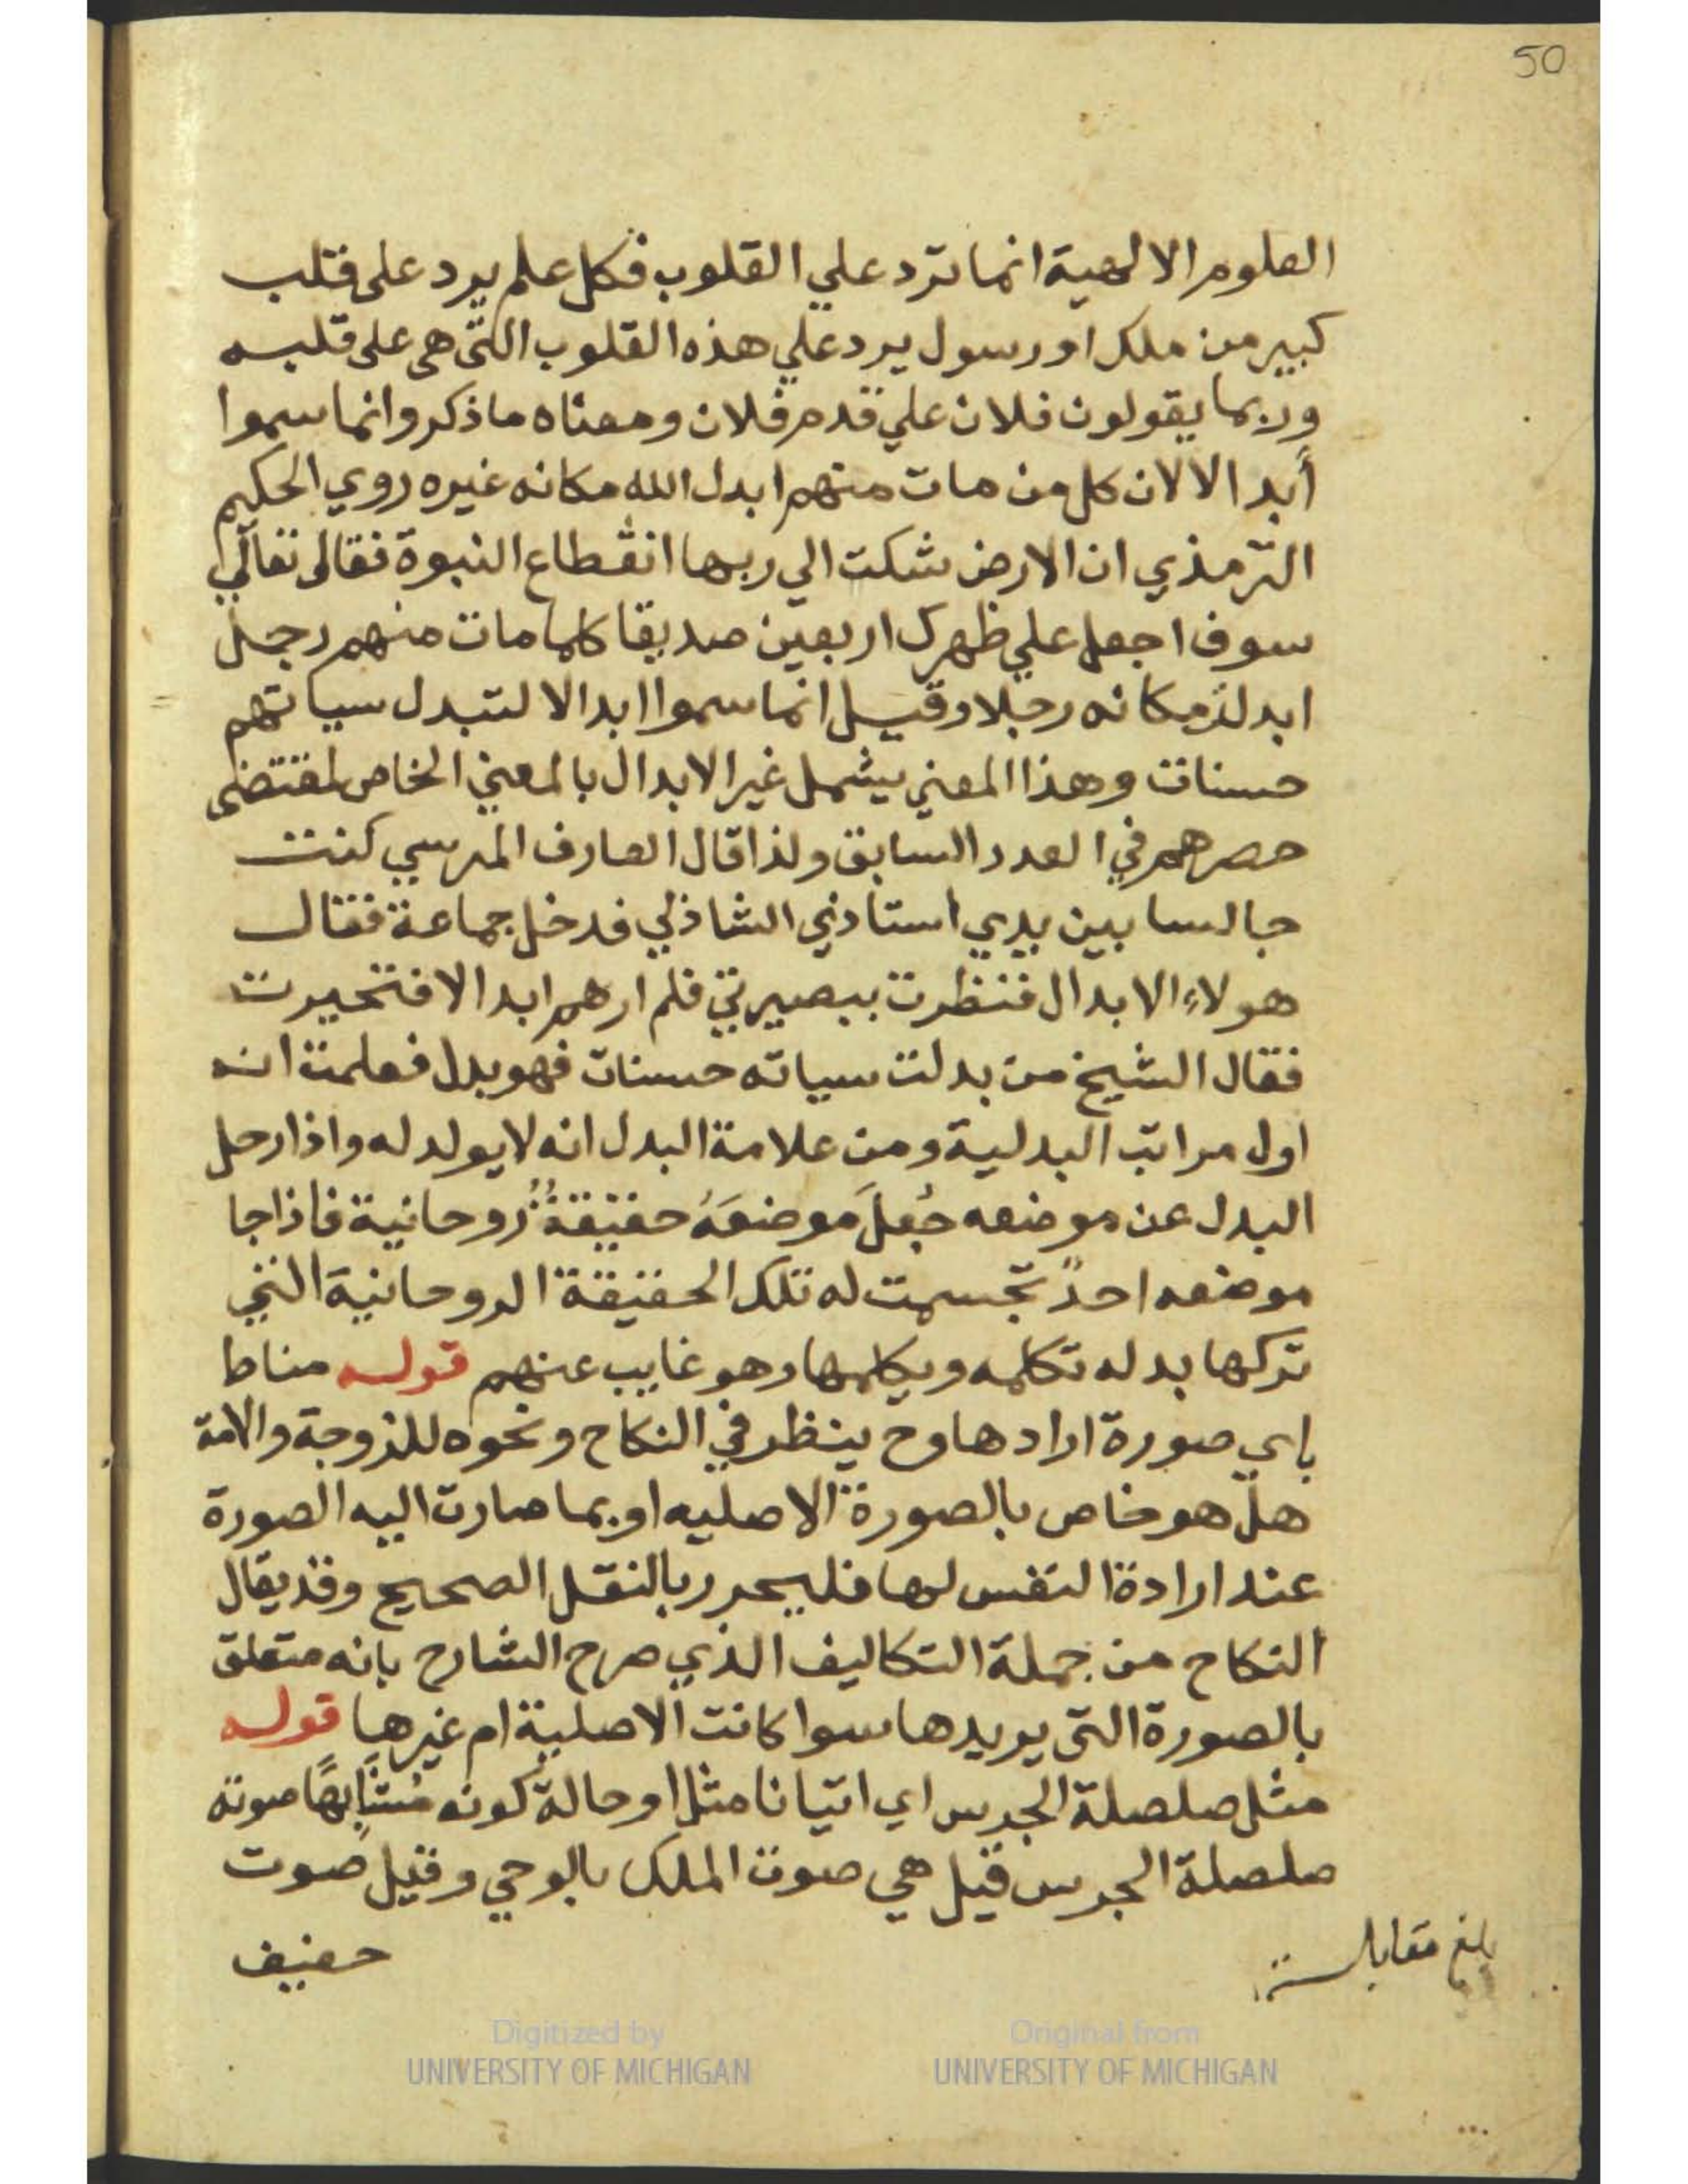 50
العلوم الالهية انما ترد علي القلوب فكل علم يرد على قلب
كبير من ملك او رسول يرد علي هذه القلوب التى هى على قلبه
وربما يقولون فلان علي قدم فلان ومعناه ما ذكر وانما سموا
أبدالا لان كل من مات منهم ابدل الله مكانه غيره روي الحكيم
الترمذي ان الارض شكت الي ربها انقطاع النبوة فقال تعالي
سوف اجعل علي ظهرك اربعين صديقا كلما مات منهم رجل
ابدلت مكانه رجلا وقيل انما سموا ابدالا لتبدل سياتهم
حسنات وهذا المعني يشمل غير الابدال بالمعني الخاص لمقتضى
حصرهم في العدد السابق ولذا قال العارف المرسي كنت
جالسا بين يدي استاذي الشاذلي فدخل جماعة فقال
هولاء الابدال فنظرت ببصيرتي فلم ارهم ابدالا فتحيرت
فقال الشيخ من بدلت سياته حسنات فهو بدل فعلمت انه
اول مراتب البدلية ومن علامة البدل انه لا يولد له واذا رحل
البدل عن موضعه جُعلَ موضعَهُ حقيقةٌ روحانية فاذا جا
موضعه احدٌ تجسمت له تلك الحقيقة الروحانية التي
تركها بدله تكلمه ويكلمها وهو غايب عنهم قوله مناطا
باي صورة ارادها وح ينظر في النكاح ونحوه للزوجة والامة
هل هو خاص بالصورة الاصليه او بما صارت اليه الصورة
عند ارادة النفس لها فليحرر بالنقل الصحيح وقد يقال
النكاح من جملة التكاليف الذي صرح الشارح بانه متعلق
بالصورة التى يريدها سوا كانت الاصلية ام غيرها قوله
مثل صلصلة الجرس اي اتيانا مثل او حالة كونه مُشَابِهًا صوته
صلصلة الجرس قيل هي صوت الملك بالوحي وقيل صوت
حفيف
بلغ مقابلة
Digitized by
UNIVERSITY OF MICHIGAN
Original from
UNIVERSITY OF MICHIGAN